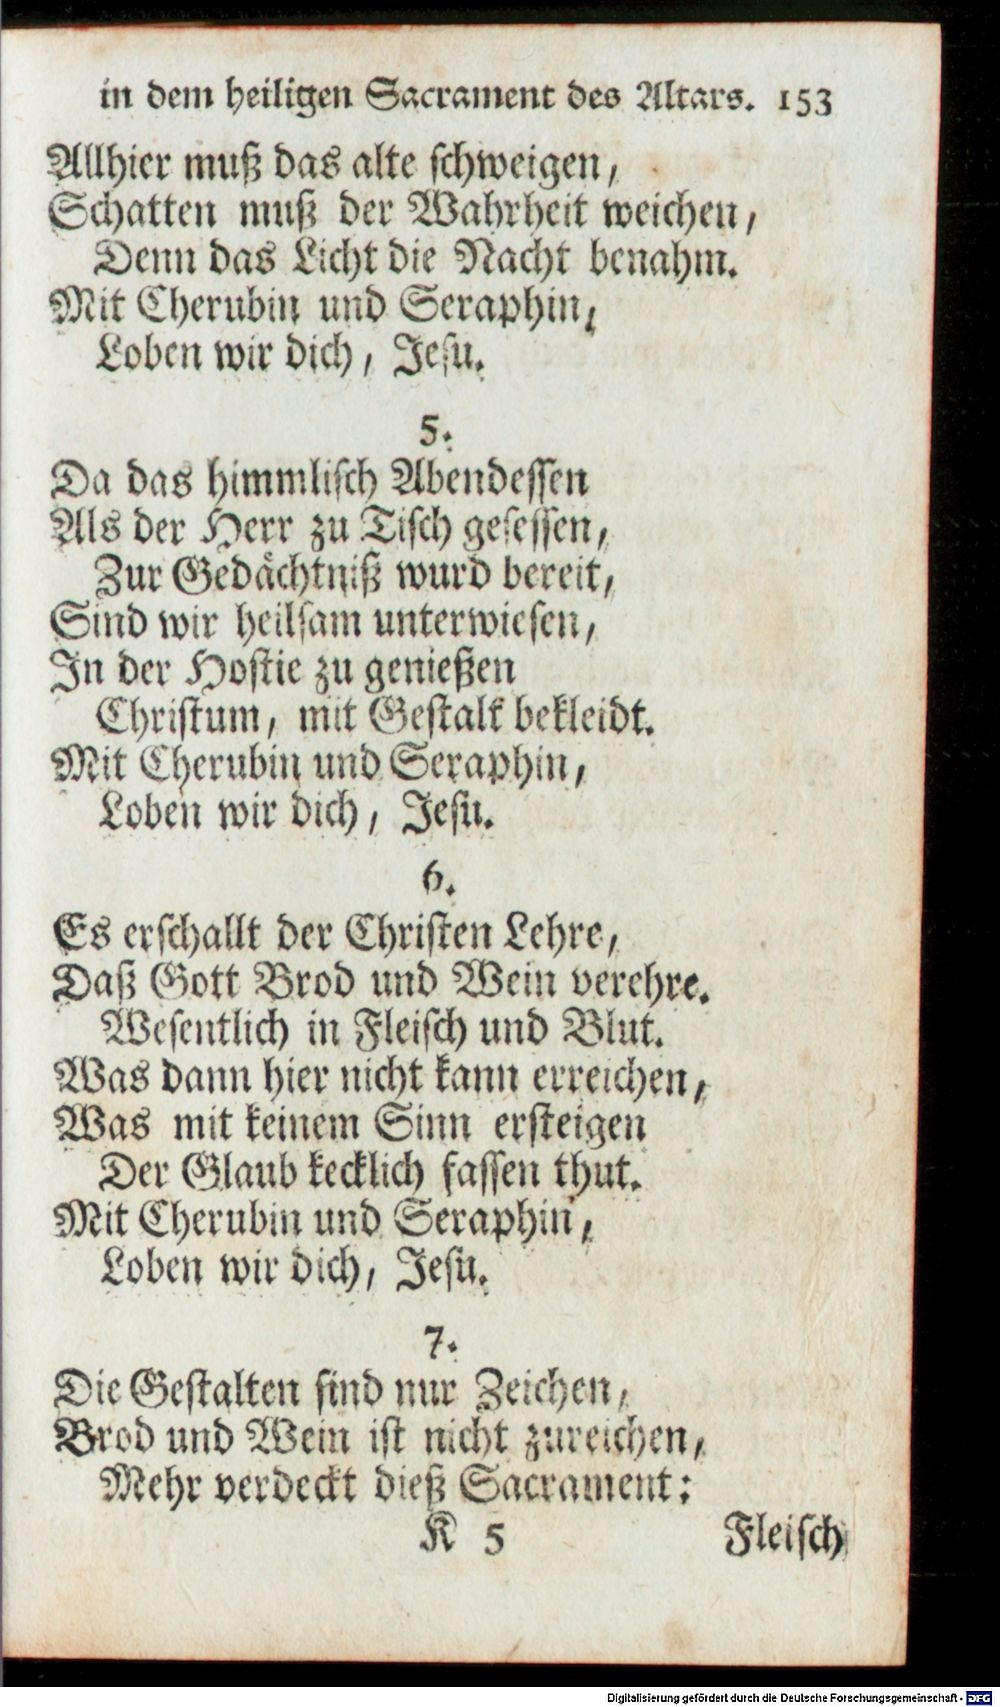 in dem heiligen Sacrament des Altars. 153
Allhier muß das alte schweigen,
Schatten muß der Wahrheit weichen,
Denn das Licht die Nacht benahm.
Mit Cherubin und Seraphin,
Loben wir dich, Jesu.
5.
Da das himmlisch Abendessen
Als der Herr zu Tisch gesessen,
Zur Gedächtniß wurd bereit,
Sind wir heilsam unterwiesen,
In der Hostie zu genießen
Christum, mit Gestalt bekleidt.
Mit Cherubin und Seraphin,
Loben wir dich, Jesu.
6.
Es erschallt der Christen Lehre,
Daß Gott Brod und Wein verehre.
Wesentlich in Fleisch und Blut.
Was dann hier nicht kann erreichen,
Was mit keinem Sinn ersteigen
Der Glaub kecklich fassen thut.
Mit Cherubin und Seraphin,
Loben wir dich, Jesu.
7.
Die Gestalten sind nur Zeichen,
Brod und Wein ist nicht zureichen,
Mehr verdeckt dieß Sacrament:
K 5 Fleisch
Digitalisierung gefördert durch die Deutsche Forschungsgemeinschaft - DFG